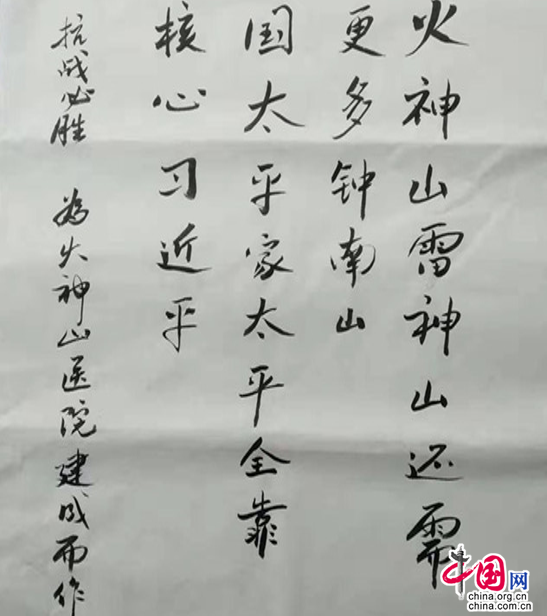 火神山雷神山还需
更多钟南山
国太平家太平全靠
核心习近平
抗战必胜 为火神山医院建成而作
中国网
china.org.cn
china.com.cn